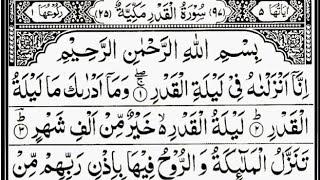 اٰيَاتُهَا ٥ (٩٧) سُوْرَةُ الْقَدْرِ مَكِّيَّةٌ (٢٥) رُكُوْعُهَا ١
بِسْمِ اللهِ الرَّحْمٰنِ الرَّحِيْمِ
اِنَّاۤ اَنْزَلْنٰهُ فِیْ لَيْلَةِ الْقَدْرِ ۝١ وَمَاۤ اَدْرٰىكَ مَا لَيْلَةُ
الْقَدْرِ ۝٢ لَيْلَةُ الْقَدْرِ ۙ خَيْرٌ مِّنْ اَلْفِ شَهْرٍ ۝٣
تَنَزَّلُ الْمَلٰٓئِكَةُ وَ الرُّوْحُ فِيْهَا بِاِذْنِ رَبِّهِمْ مِّنْ